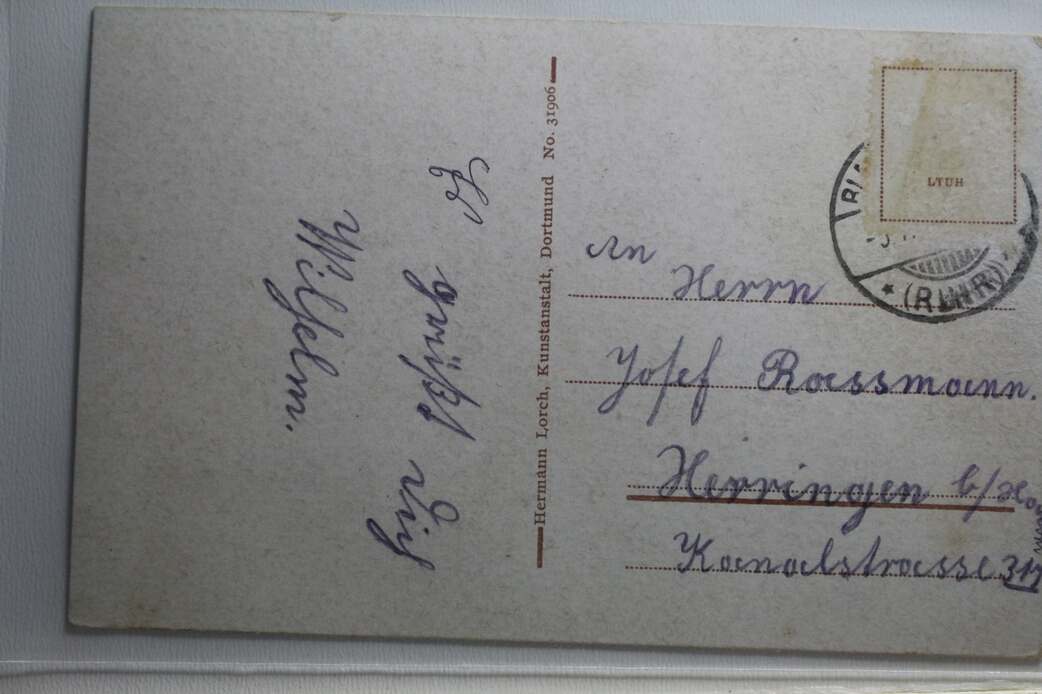 Es
grüßt Dich
Wilhelm.
Hermann Lorch, Kunstanstalt, Dortmund No. 31906
An
Herrn
Josef Rassmann.
Herringen b/
Kanalstrasse
(RUHR)